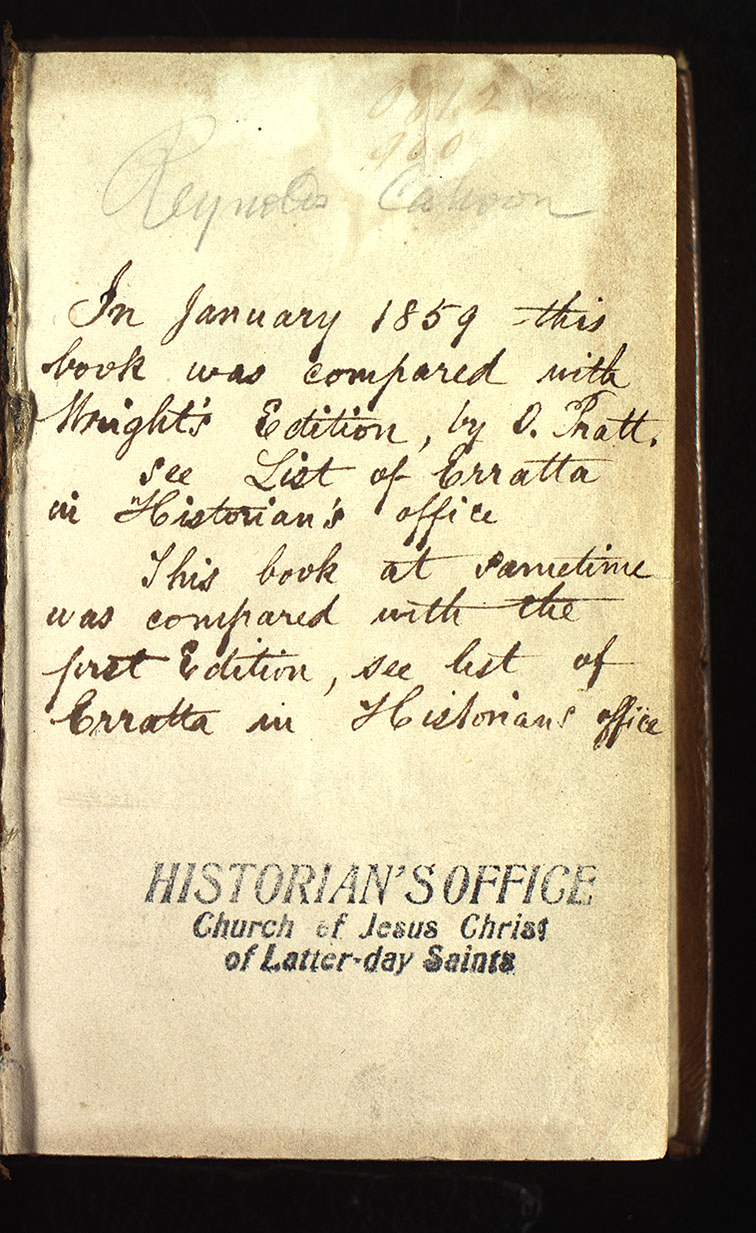 Reynolds Cahoon
In January 1859 this
book was compared with
Wright's Edition, by O. Pratt.
see List of Erratta
in Historian's office
This book at sometime
was compared with the
first Edition, see list of
Erratta in Historians office
HISTORIAN'S OFFICE
Church of Jesus Christ
of Latter-day Saints